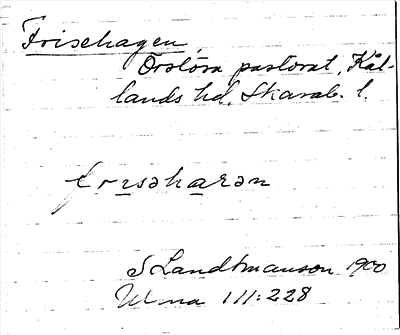 Frisehagen,
Örslösa pastorat, Kål-
lands hd, Skarab. l.
frisəhaɡən
S Landtmanson 1900
Ulma 111:228